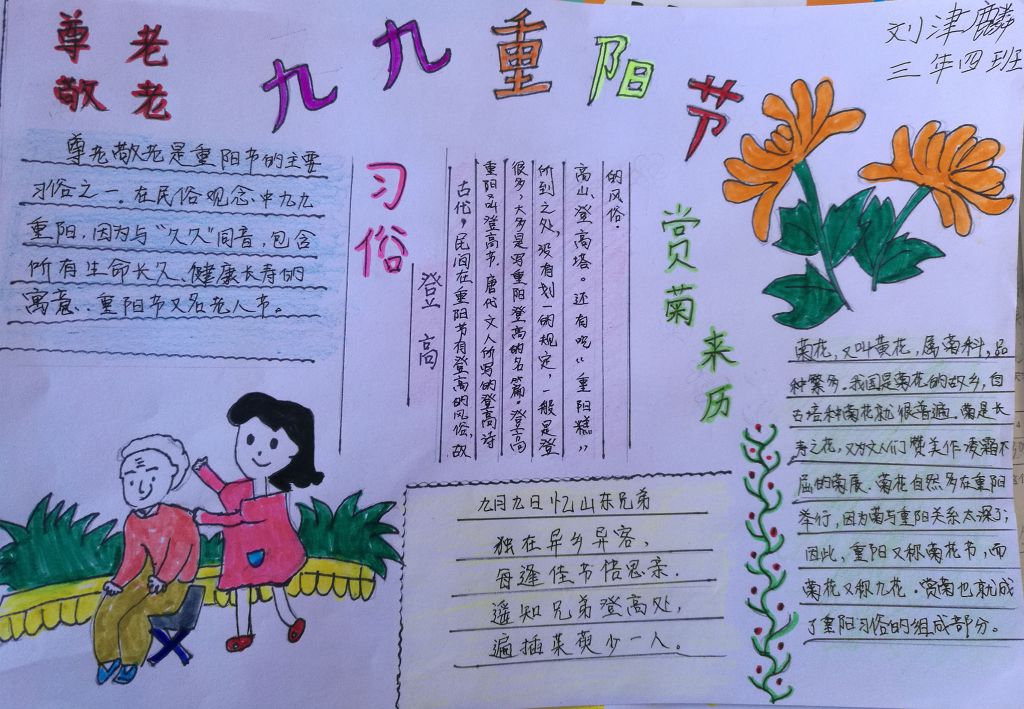 尊老
敬老
九九重阳节
刘津麟
三年四班
尊老敬老是重阳节的主要
习俗之一。在民俗观念中九九
重阳,因为与“久久”同音,包含
所有生命长久、健康长寿的
寓意。重阳节又名老人节。
习俗
登高
古代,民间在重阳节有登高的风俗,故
重阳叫登高节。唐代文人所写的登高诗
很多,大多是写重阳登高的名篇。登高
所到之处,没有划一的规定,一般是登
高山、登高塔。还有吃“重阳糕”
的风俗.
赏菊来历
菊花,又叫黄花,属菊科,品
种繁多.我国是菊花的故乡,自
古培种菊花就很普遍.菊是长
寿之花,又为文人们赞美作凌霜不
屈的
菊花自然多在重阳
举行,因为菊与重阳关系太深了;
因此,重阳又称菊花节,而
菊花又称九花.赏菊也就成
了重阳习俗的组成部分。
九月九日忆山东兄弟
独在异乡异客,
每逢佳节倍思亲.
遥知兄弟登高处,
遍插茱萸少一人。